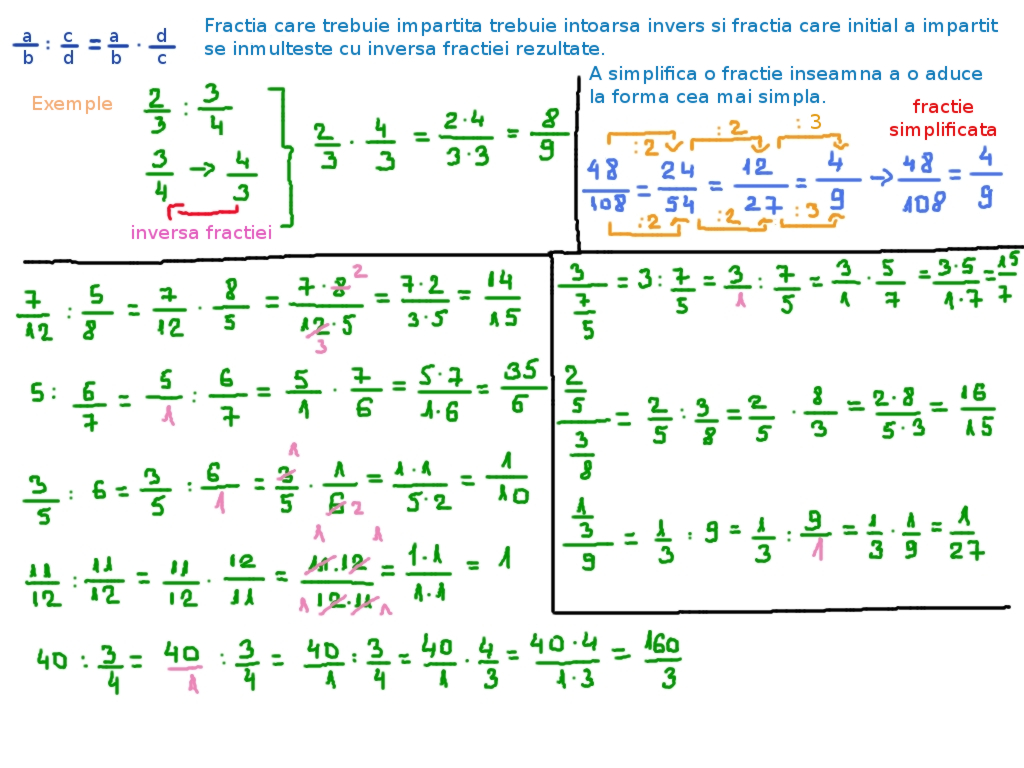 a/b : c/d = a/b · d/c
Fractia care trebuie impartita trebuie intoarsa invers si fractia care initial a impartit
se inmulteste cu inversa fractiei rezultate.
Exemple
2/3 : 3/4
3/4 → 4/3
inversa fractiei
2/3 · 4/3 = 2·4/3·3 = 8/9
A simplifica o fractie inseamna a o aduce
la forma cea mai simpla.
fractie
simplificata
:2 :2 :3
48/108 = 24/54 = 12/27 = 4/9 → 48/108 = 4/9
:2 :2 :3
7/12 : 5/8 = 7/12 · 8/5 = 7·8/12·5 = 7·2/3·5 = 14/15
2
3
5 : 6/7 = 5/1 : 6/7 = 5/1 · 7/6 = 5·7/1·6 = 35/6
3/5 : 6 = 3/5 : 6/1 = 3/5 · 1/6 = 1·1/5·2 = 1/10
1
2
11/12 : 11/12 = 11/12 · 12/11 = 11·12/12·11 = 1·1/1·1 = 1
1 1
1 1
40 : 3/4 = 40/1 : 3/4 = 40/1 : 3/4 = 40/1 · 4/3 = 40·4/1·3 = 160/3
3/(7/5) = 3 : 7/5 = 3/1 : 7/5 = 3/1 · 5/7 = 3·5/1·7 = 15/7
(2/5)/(3/8) = 2/5 : 3/8 = 2/5 · 8/3 = 2·8/5·3 = 16/15
(1/3)/9 = 1/3 : 9 = 1/3 : 9/1 = 1/3 · 1/9 = 1/27